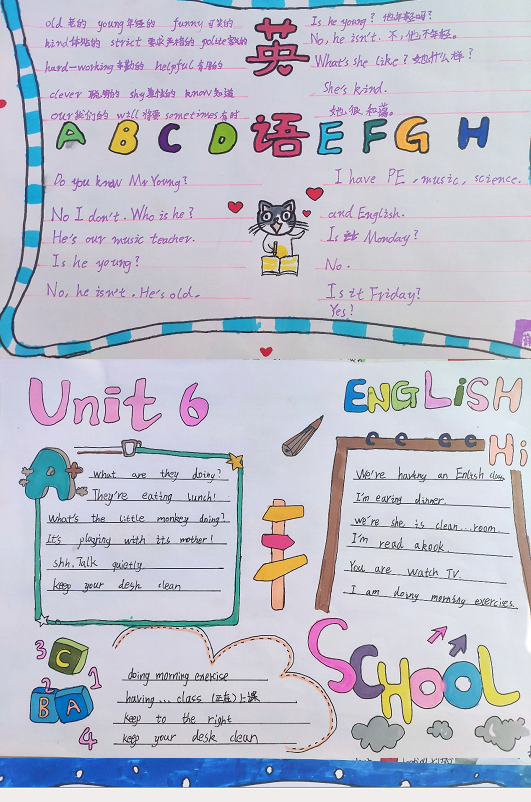 old 老的 young年轻的 funny 可笑的
kind体贴的 strict 要求严格的 polite
hard-working辛勤的 helpful有用的
clever 聪明的 shy害羞的 know知道
our我们的 will将要 sometimes有时
英
Is he young? 他年轻吗?
No, he isn't. 不,他不年轻。
What's she like? 她什么样?
She's kind.
她很和蔼。
A B C D 语 E F G H
Do you know Mr Young?
No I don't. Who is he?
He's our music teacher.
Is he young?
No, he isn't. He's old.
I have PE, music, science.
and English.
Is it Monday?
No.
Is it Friday?
Yes!
Unit 6
ENGLiSH
Hi
A
What are they doing?
They're eating lunch!
What's the little monkey doing?
It's playing with its mother!
shh. Talk quietly.
keep your desk clean
We're having an Enlish class
I'm earing dinner.
we're she is clean...room.
I'm read a book.
You are watch TV.
I am doing morning exercises.
3 C 1
2 B A
4
doing morning exercise
having... class (正在)上课
keep to the right
keep your desk clean
SCHOOL